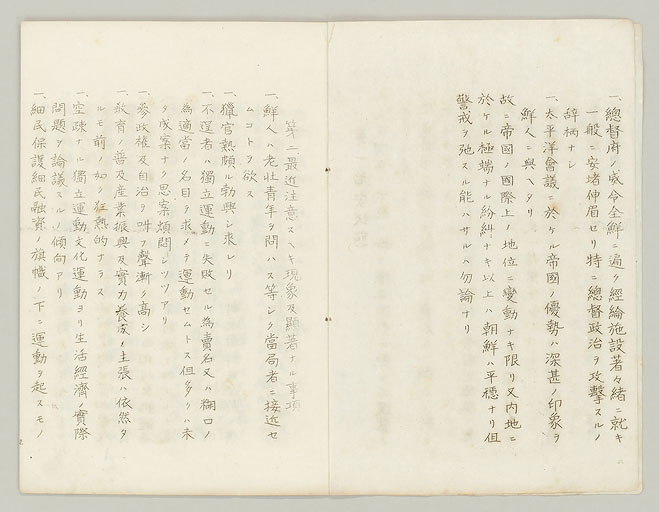 一、總督府ノ威令全鮮ニ遍ク經綸施設著々緒ニ就キ
一般ニ安堵伸眉セリ特ニ總督政治ヲ攻擊スルノ
辭柄ナシ
一、太平洋會議ニ於ケル帝國ノ優勢ハ深甚ノ印象ヲ
鮮人ニ與ヘタリ
故ニ帝國ノ國際上ノ地位ニ變動ナキ限リ又內地ニ
於ケル極端ナル紛糾ナキ以上ハ朝鮮ハ平穩ナリ但
警戒ヲ弛スル能ハサルハ勿論ナリ
第二最近注意スヘキ現象及顯著ナル事項
一、鮮人ハ老壯青年ヲ問ハス等シク當局者ニ接近セ
ムコトヲ欲ス
一、獵官熱頗ル勃興シ來レリ
一、不逞者ハ獨立運動ニ失敗セル為賣名又ハ糊口ノ
為適當ノ名目ヲ求メテ運動セムトス但多クハ未
タ成案ナク思案煩悶シツツアリ
一、參政權及自治ヲ叫フ聲漸ク高シ
一、敎育ノ普及產業振興及實力養成ノ主張ハ依然タ
ルモ前ノ如ク狂熱的ナラス
一、空疎ナル獨立運動文化運動ヨリ生活經濟ノ實際
問題ヲ論議スルノ傾向アリ
一、細民保護細民融資ノ旗幟ノ下ニ運動ヲ起スモノ